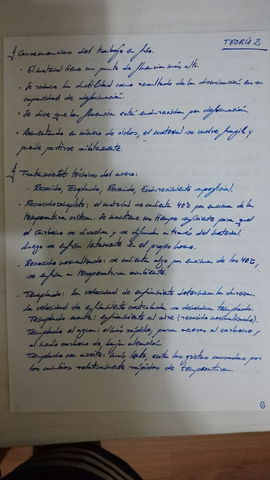 TEORÍA 2
Consecuencias del trabajo en frío.
· El material tiene un punto de fluencia más alto.
· Se reduce la ductilidad como resultado de la disminución en su
capacidad de deformación.
· Se dice que la fluencia está endurecida por deformación.
· Aumentando en número de ciclos, el material se vuelve frágil y
puede partirse súbitamente.
Tratamientos térmicos del acero:
· Recocido, Templado, Revenido, Endurecimiento superficial.
· Recocido completo: el material se calienta 40°C por encima de la
temperatura crítica. Se mantiene un tiempo suficiente para que
el carbono se disuelva y se difunda a través del material.
Luego se enfría lentamente en el propio horno.
· Recocido normalizado: se calienta algo por encima de los 40°C,
se enfría a temperatura ambiente.
· Templado: la velocidad de enfriamiento determina la dureza.
La velocidad de enfriamiento controlada se denomina templado.
Templado suave: enfriamiento al aire (recocido normalizado).
Templado al agua: el más rápido, para aceros al carbono y
al medio carbono de baja aleación.
Templado con aceite: más lento, evita las grietas causadas por
los cambios relativamente rápidos de temperatura.